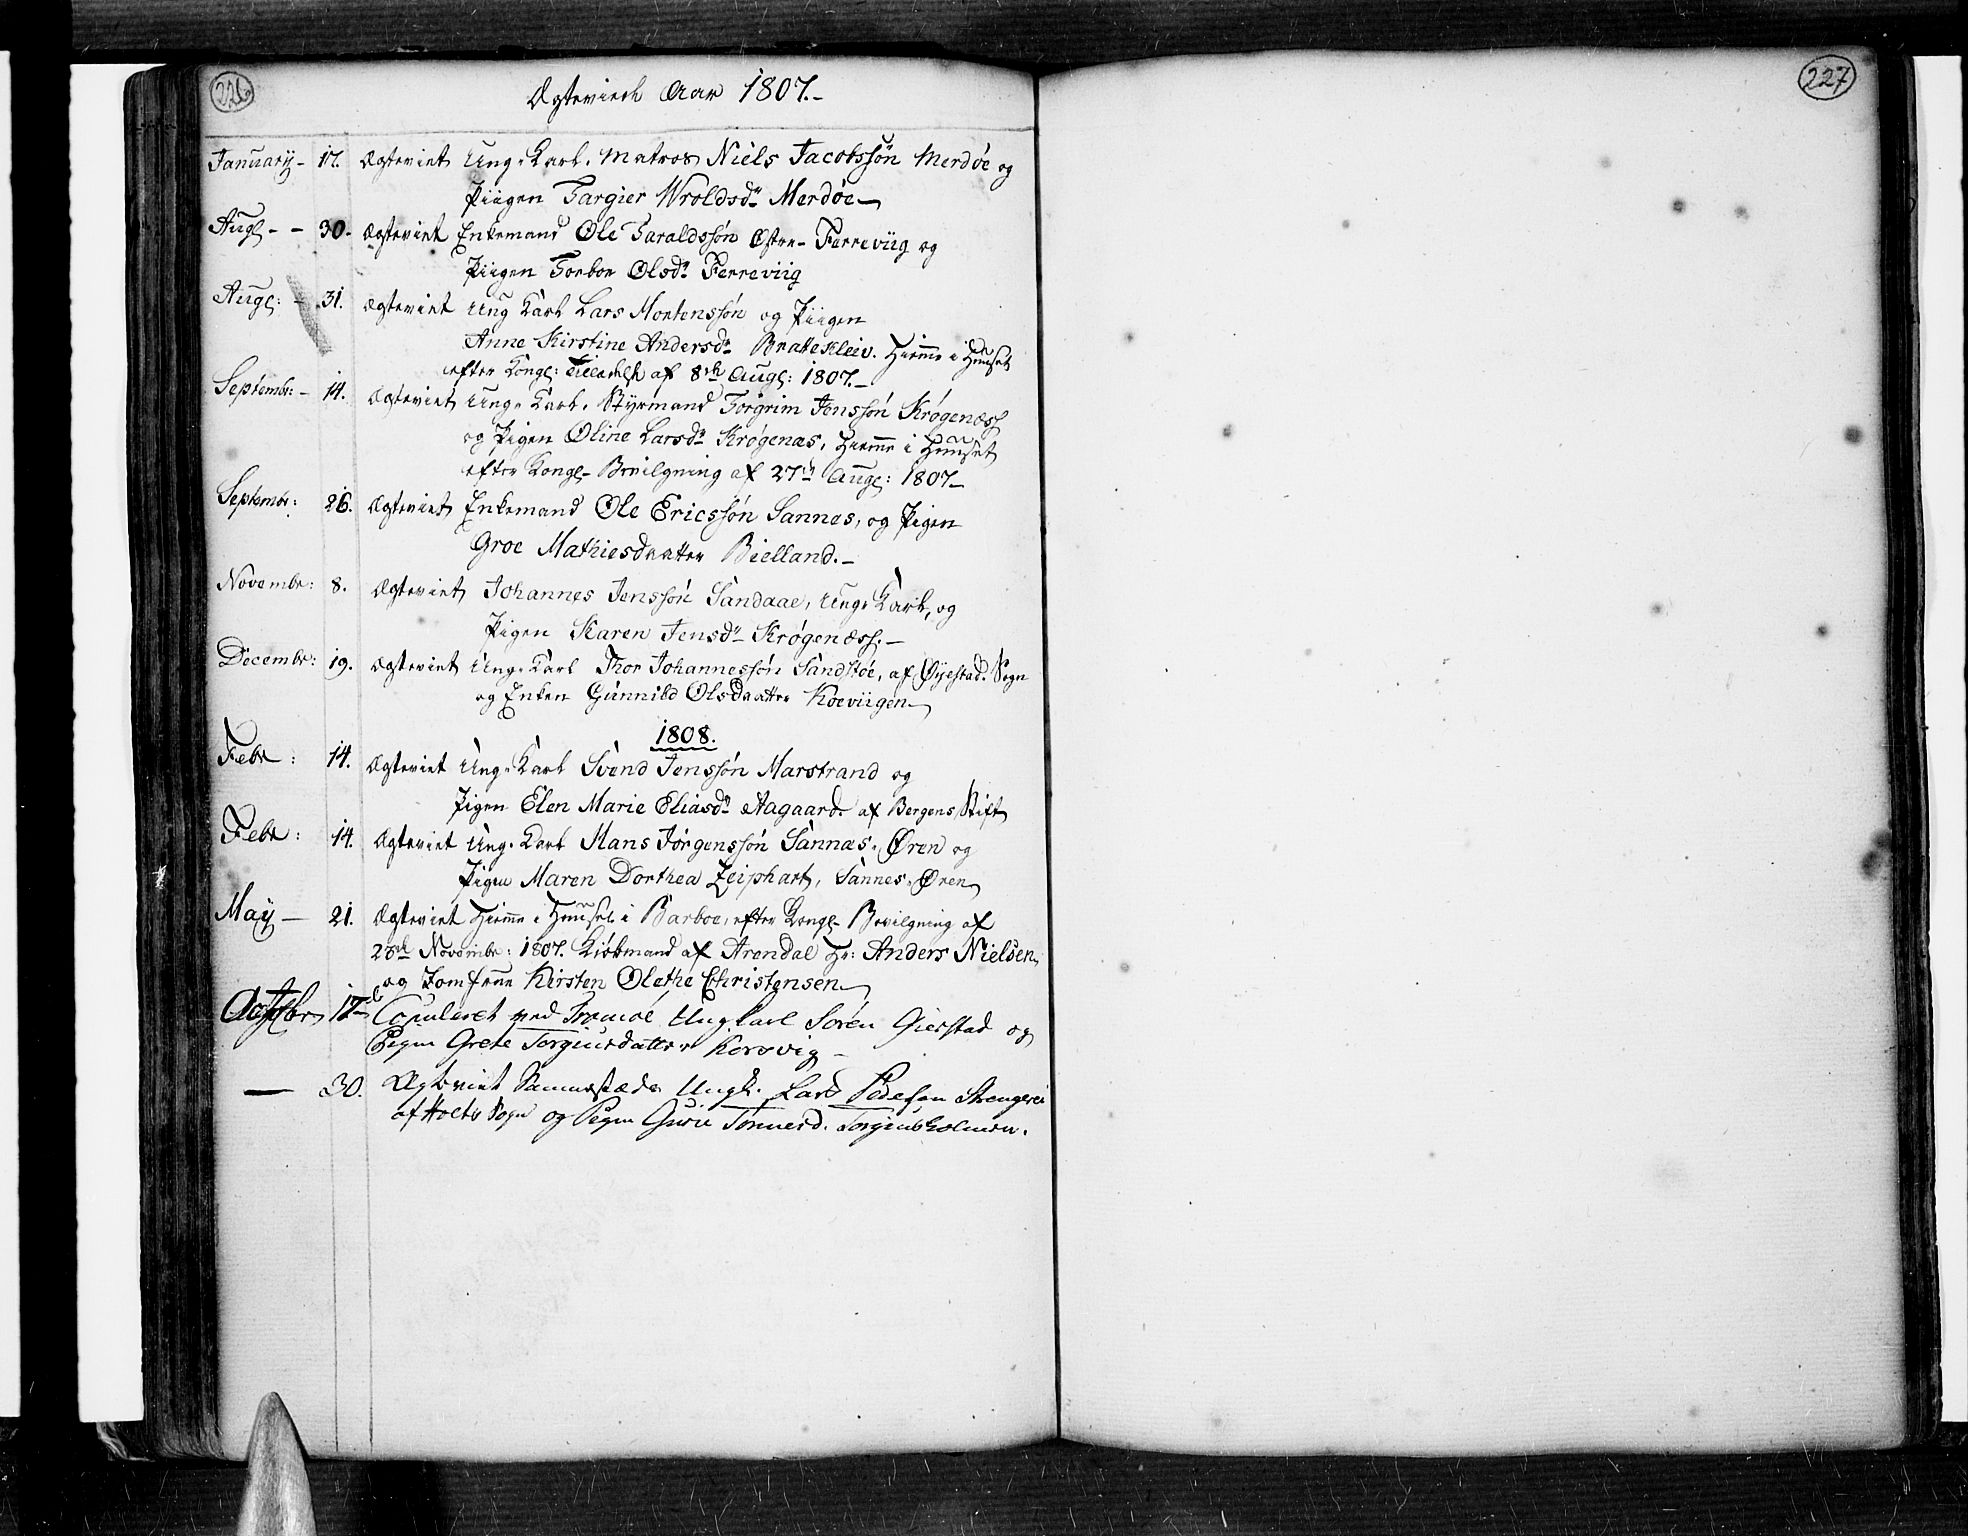 226
Ægteviede Aar 1807.-
January - 17. Ægteviet Ung-Karl, Matros Niels Jacobssøn Merdøe og
Piigen Targier Wroldsdr. Merdøe
Augl - - 30. Ægteviet Enkemand Ole Taraldssøn Østre-Ferreviig og
Piigen Torbor Olsdr. Ferreviig
Augl: - 31. Ægteviet Ung Karl Lars Mortenssøn og Piigen
Anne Kirstine Andersdr. Brattekleiv. Hiemme i Huuset
efter Kongl: Tilladelse af 8de Augl: 1807.-
Septembr: - 14. Ægteviet Ung-Karl, Styrmand Torgrim Jenssøn Krøgenæss
og Pigen Oline Larsdr. Krøgenæs, Hiemme i Huuset
efter Kongl- Bevilgning af 27de Augl: 1807-
Septembr: 26. Ægteviet Enkemand Ole Ericssøn Sannes, og Pigen
Groe Mathiesdaatter Bielland.-
Novembr: 8. Ægteviet Johannes Jenssøn Sandaae, Ung-Karl, og
Pigen Karen Jensdr. Krøgenæss.-
Decembr: 19. Ægteviet Ung-Karl Thor Johannessøn Sandstøe, af Øyestad-Sogn
og Enken Gunnild Olsdaatter Koeviigen
1808.
Febr: 14. Ægteviet Ung-Karl Svend Jenssøn Marstrand og
Pigen Elen Marie Eliasdr. Aagaard af Bergens Stift
Febr: 14. Ægteviet Ung-Karl Hans Jørgenssøn Sannæs-Øren og
Pigen Maren Dorthea Zeiphart, Sannes-Øren
May - 21. Ægteviet Hiemme i Huuset i Barboe, efter Kongl- Bevilgning af
20de Novembr: 1807. Kiøbmand af Arendal Hr: Anders Nielsen
og Jomfrue Kirsten Olethe Christensen
Octbr 17de Copuleret ved Tromøe Ungkarl Søren Gierstad og
Pigen Grete Torgiusdatter Korsvig -
— 30. Ægteviet Sammestæds Ungk. Lars Pedersen Strengerei
af Holts Sogn og Pigen Gurie Tønnesd. Torgiusholmen.
227